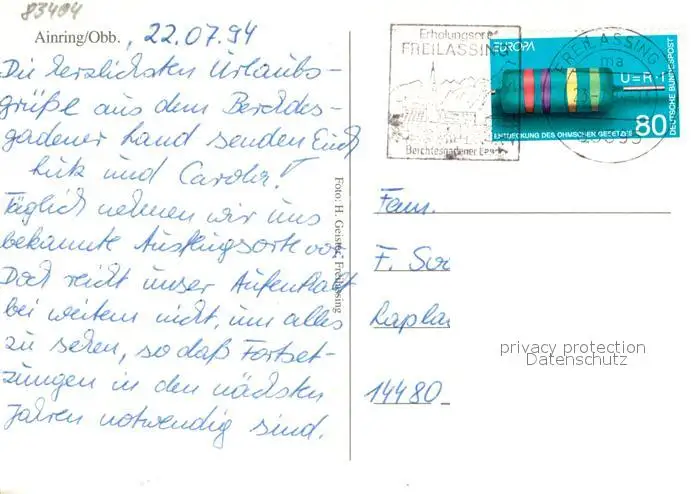 83404
Ainring/Obb., 22.07.94
Die herzlichsten Urlaubs-
grüße aus dem Berchdes-
gadener Land senden Euch
Lutz und Carola!
Täglich nehmen wir uns
bekannte Ausflugsorte vor.
Doch reicht unser Aufenthalt
bei weitem nicht, um alles
zu sehen, so daß Fortset-
zungen in den nächsten
Jahren notwendig sind.
Foto: H. Geisler, Freilassing
Erholungsort
FREILASSING
Berchtesgadener Land
FREILASSING
ma
EUROPA
U=R·I
ENTDECKUNG DES OHMSCHEN GESETZES
80
DEUTSCHE BUNDESPOST
Fam.
F.
14480
privacy protection
Datenschutz